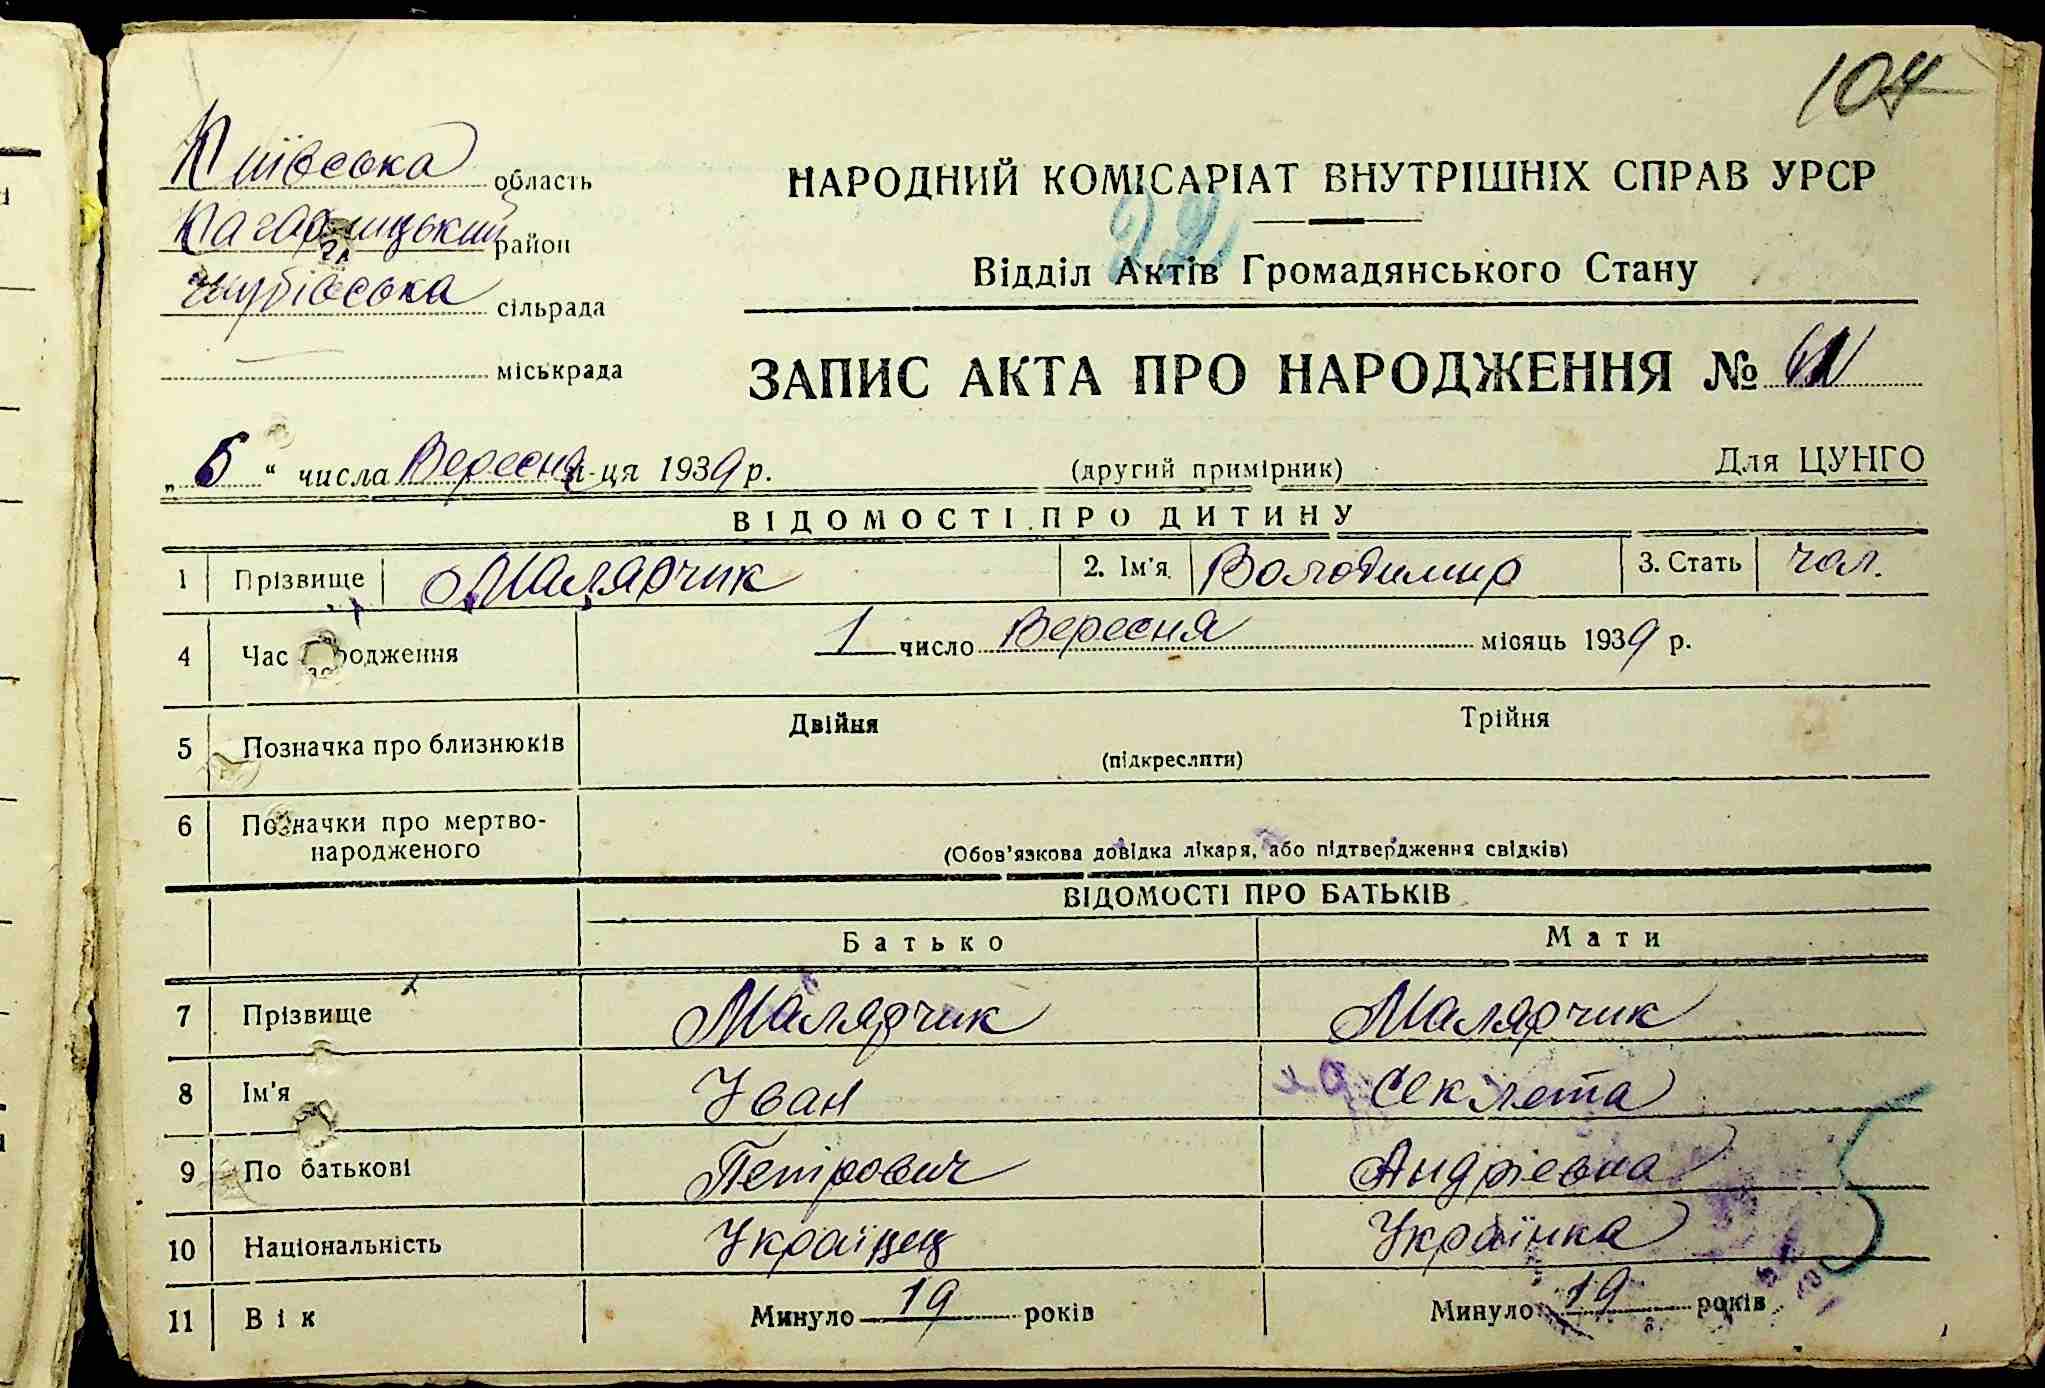 104
Київська область
Кагарлицький район
сільрада
міськрада
НАРОДНИЙ КОМІСАРІАТ ВНУТРІШНІХ СПРАВ УРСР
22
Відділ Актів Громадянського Стану
ЗАПИС АКТА ПРО НАРОДЖЕННЯ №
„ 5 “ числа Вересня м-ця 1939 р. (другий примірник) Для ЦУНГО
ВІДОМОСТІ ПРО ДИТИНУ
1 Прізвище Малярчик 2. Ім'я Володимир 3. Стать чол.
4 Час народження 1 число Вересня місяць 1939 р.
5 Позначка про близнюків Двійня Трійня
(підкреслити)
6 Позначки про мертво-
народженого
(Обов'язкова довідка лікаря, або підтвердження свідків)
ВІДОМОСТІ ПРО БАТЬКІВ
Батько Мати
7 Прізвище Малярчик Малярчик
8 Ім'я Іван Секлета
9 По батькові Петрович Андріевна
10 Національність Українец Українка
11 Вік Минуло 19 років Минуло 19 років